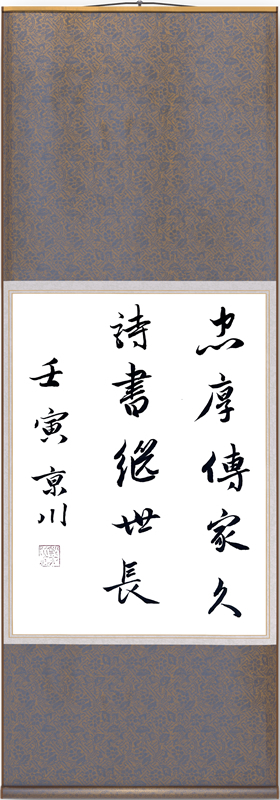 忠厚傳家久
詩書繼世長
壬寅京川